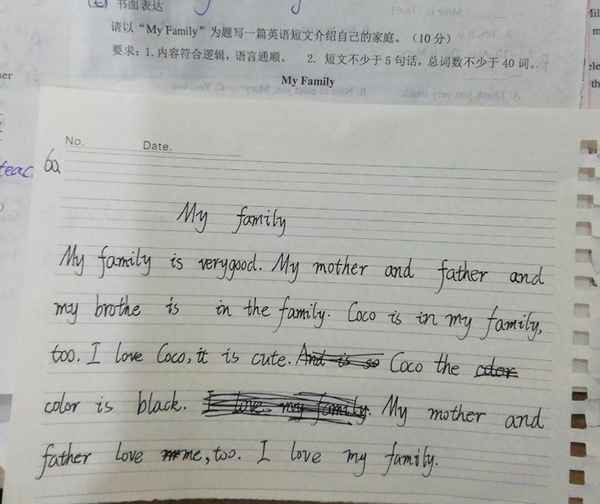 书面表达
请以“My Family”为题写一篇英语短文介绍自己的家庭。（10 分）
要求：1. 内容符合逻辑，语言通顺。 2. 短文不少于 5 句话，总词数不少于 40 词。
My Family
No. Date.
teac
My family
My family is verygood. My mother and father and
my brothe is in the family. Coco is in my family,
too. I love Coco, it is cute. And is so Coco the color
color is black. I love my family. My mother and
father love me, too. I love my family.